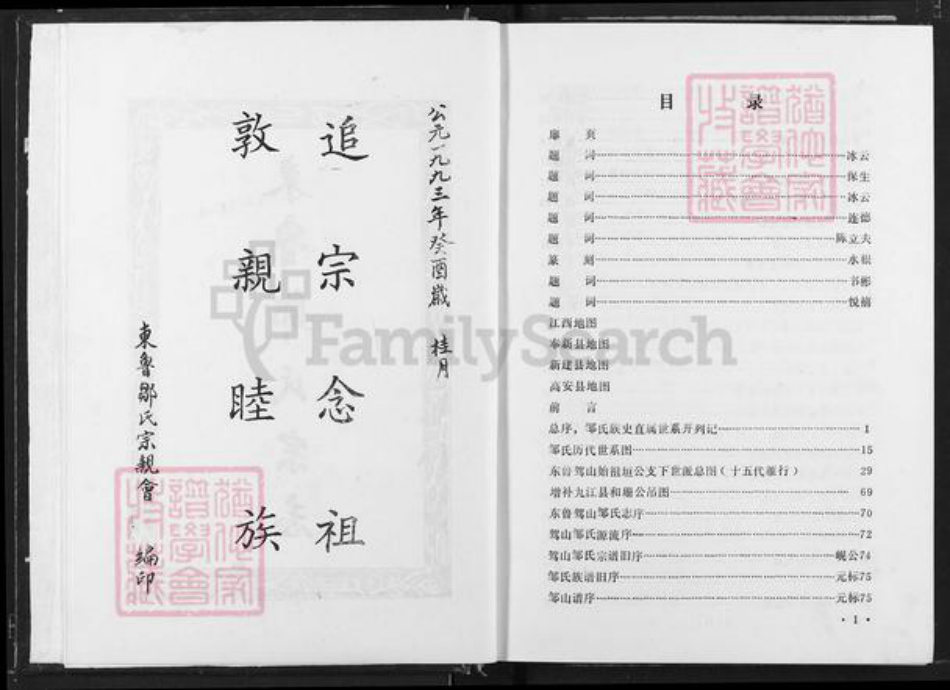 公元一九九三年癸酉歲 桂月
追宗念祖
敦親睦族
東魯鄒氏宗親會 編印
猶他家
譜學會
收藏
FamilySearch
目 录
扉 页
题 词 冰云
题 词 保生
题 词 冰云
题 词 连德
题 词 陈立夫
篆 刻 水根
题 词 书彬
题 词
江西地图
奉新县地图
新建县地图
高安县地图
前 言
总序，邹氏族史直属世系开列记 1
邹氏历代世系图 15
东鲁驾山始祖垣公支下世派总图（十五代雁行） 29
增补九江县和珊公吊图 69
东鲁驾山邹氏志序 70
驾山邹氏源流序 72
驾山邹氏宗谱旧序 岘公74
邹氏族谱旧序 元标75
邹山谱序 元标75
·1·
猶他家
譜學會
收藏